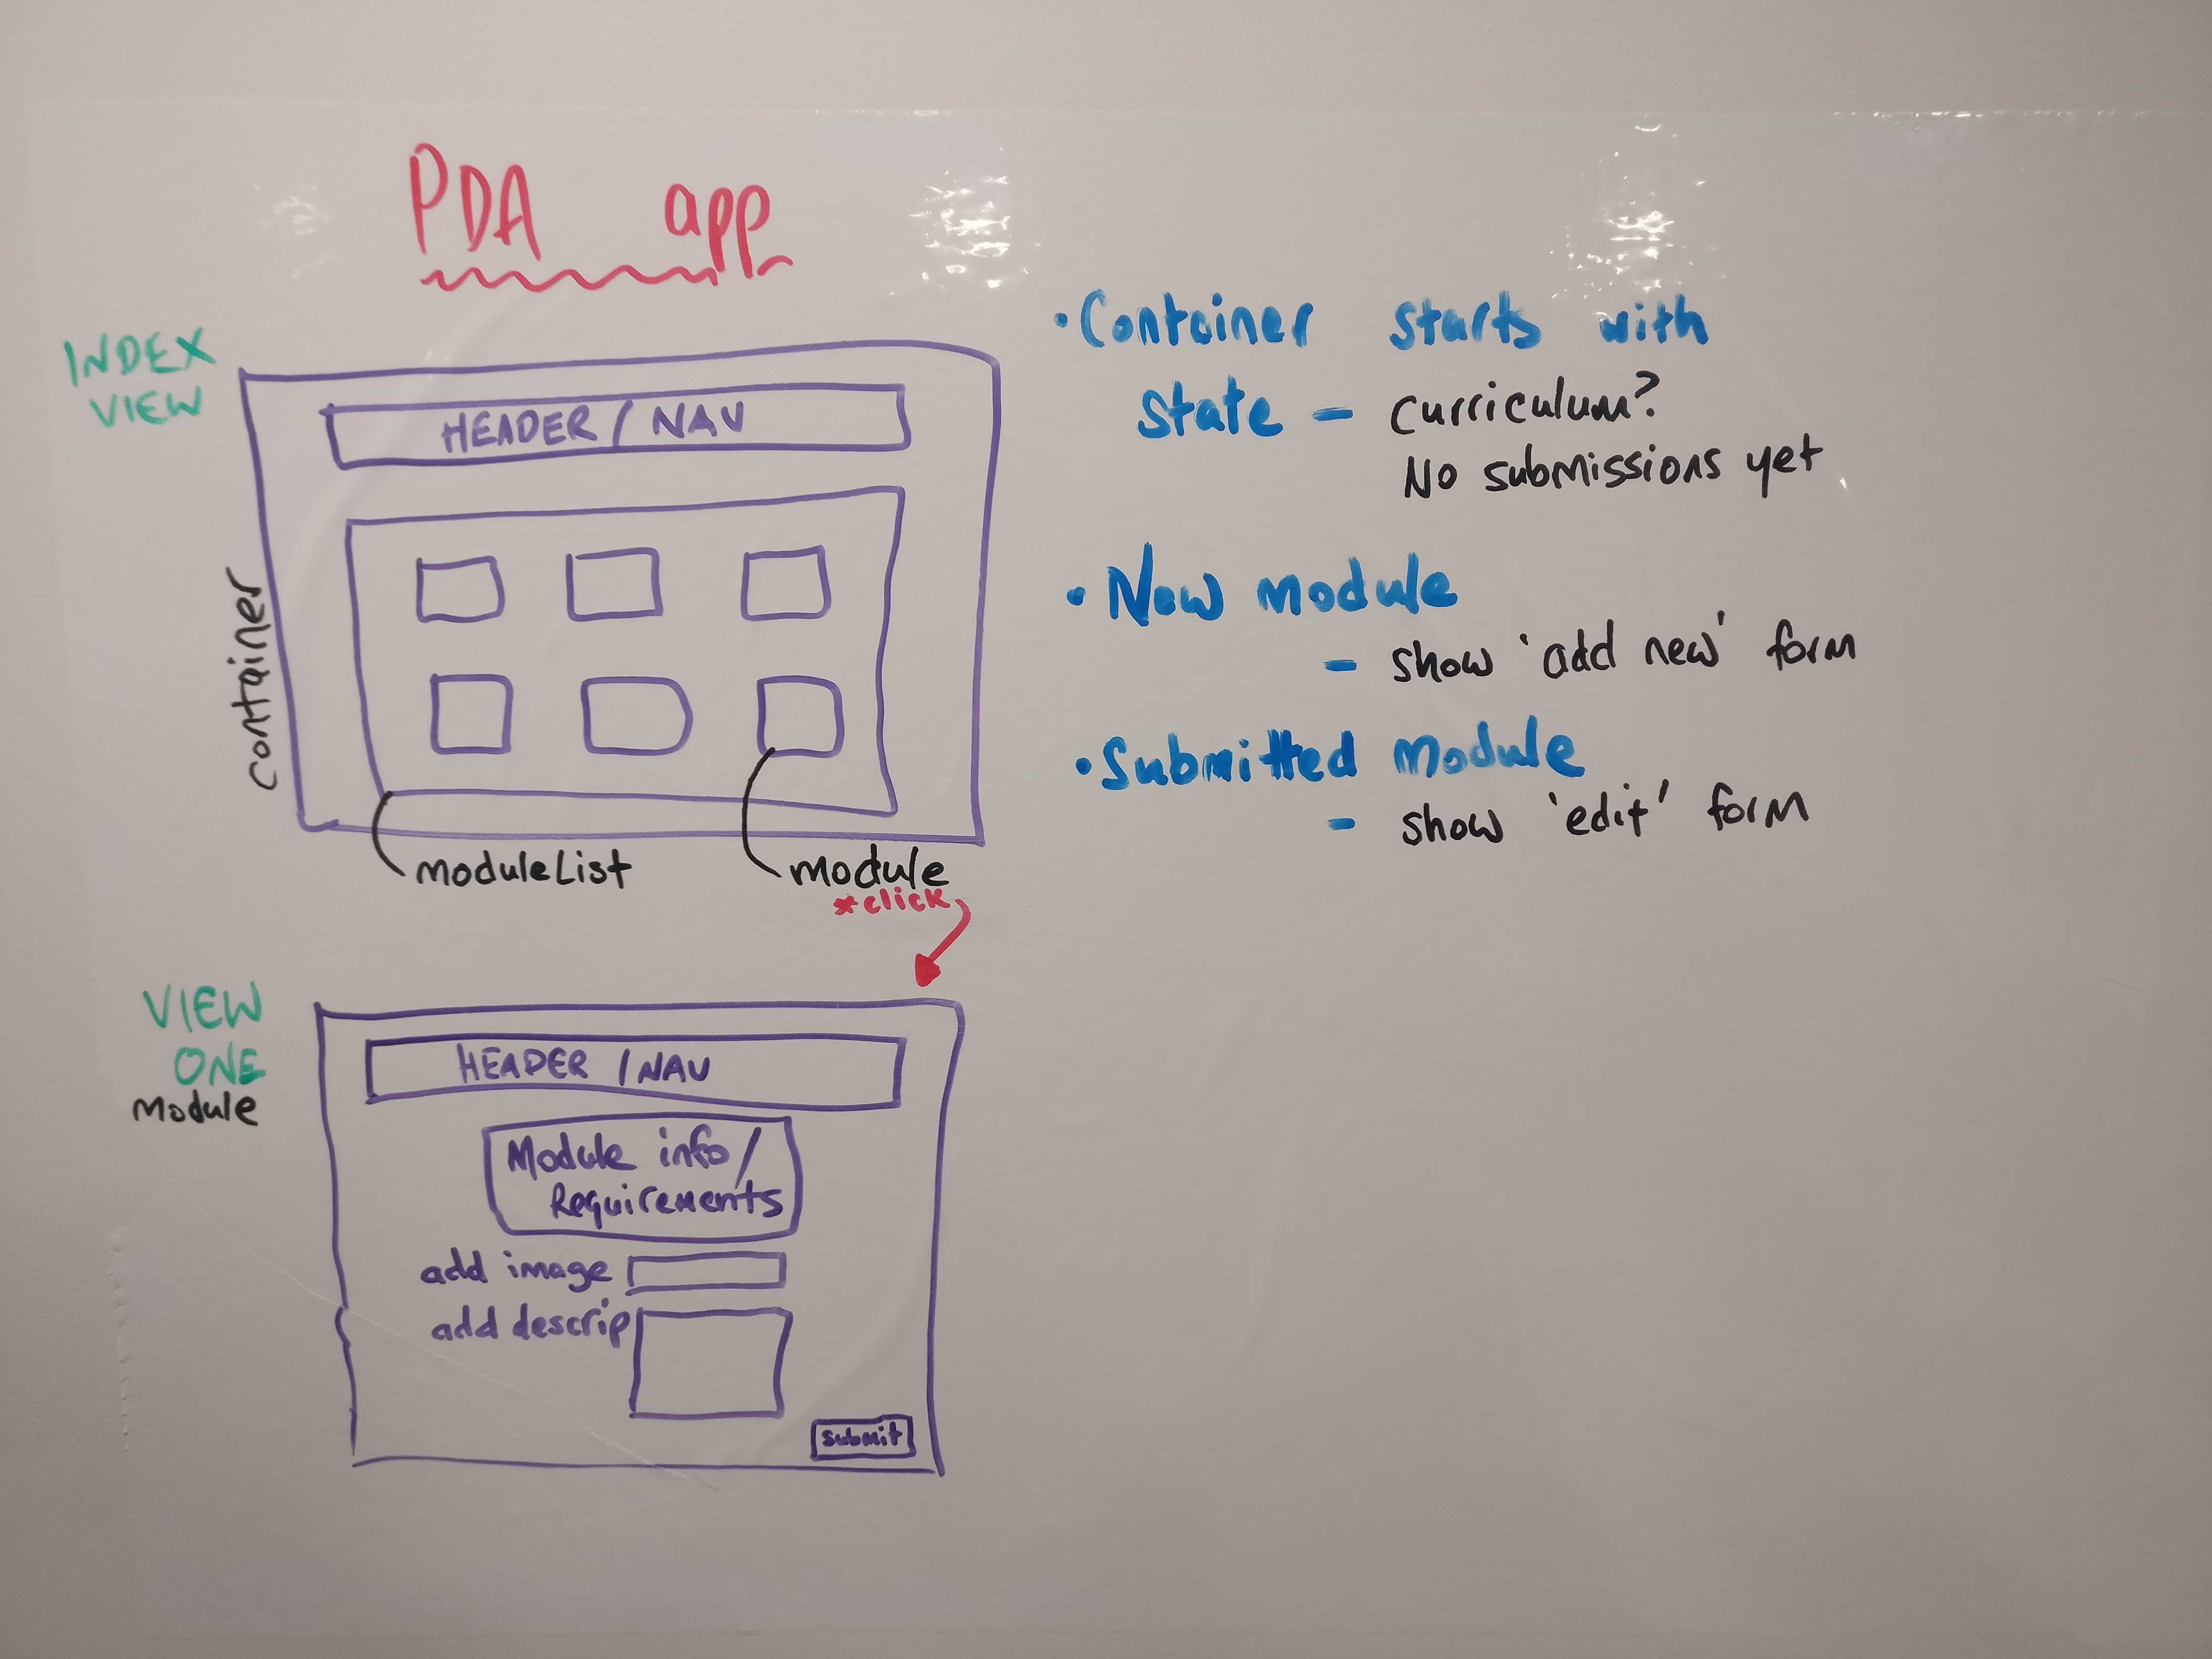 PDA app
INDEX
VIEW
HEADER / NAV
container
moduleList
module
*click
VIEW
ONE
Module
HEADER / NAV
Module info /
Requirements
add image
add descrip
submit
• Container starts with
State - curriculum?
No submissions yet
• New module
- show 'add new' form
• Submitted Module
- show 'edit' form